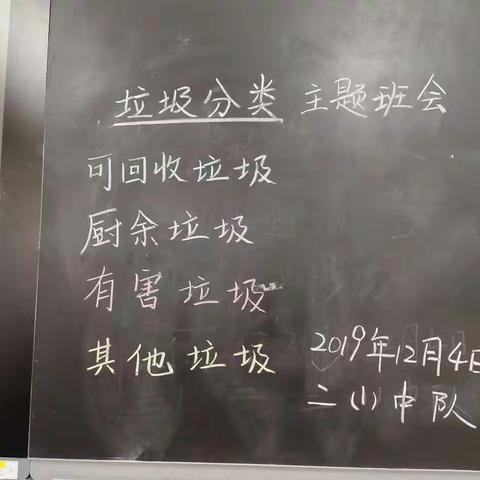 垃圾分类 主题班会
可回收垃圾
厨余垃圾
有害垃圾
其他垃圾
2019年12月4日
二(1)中队